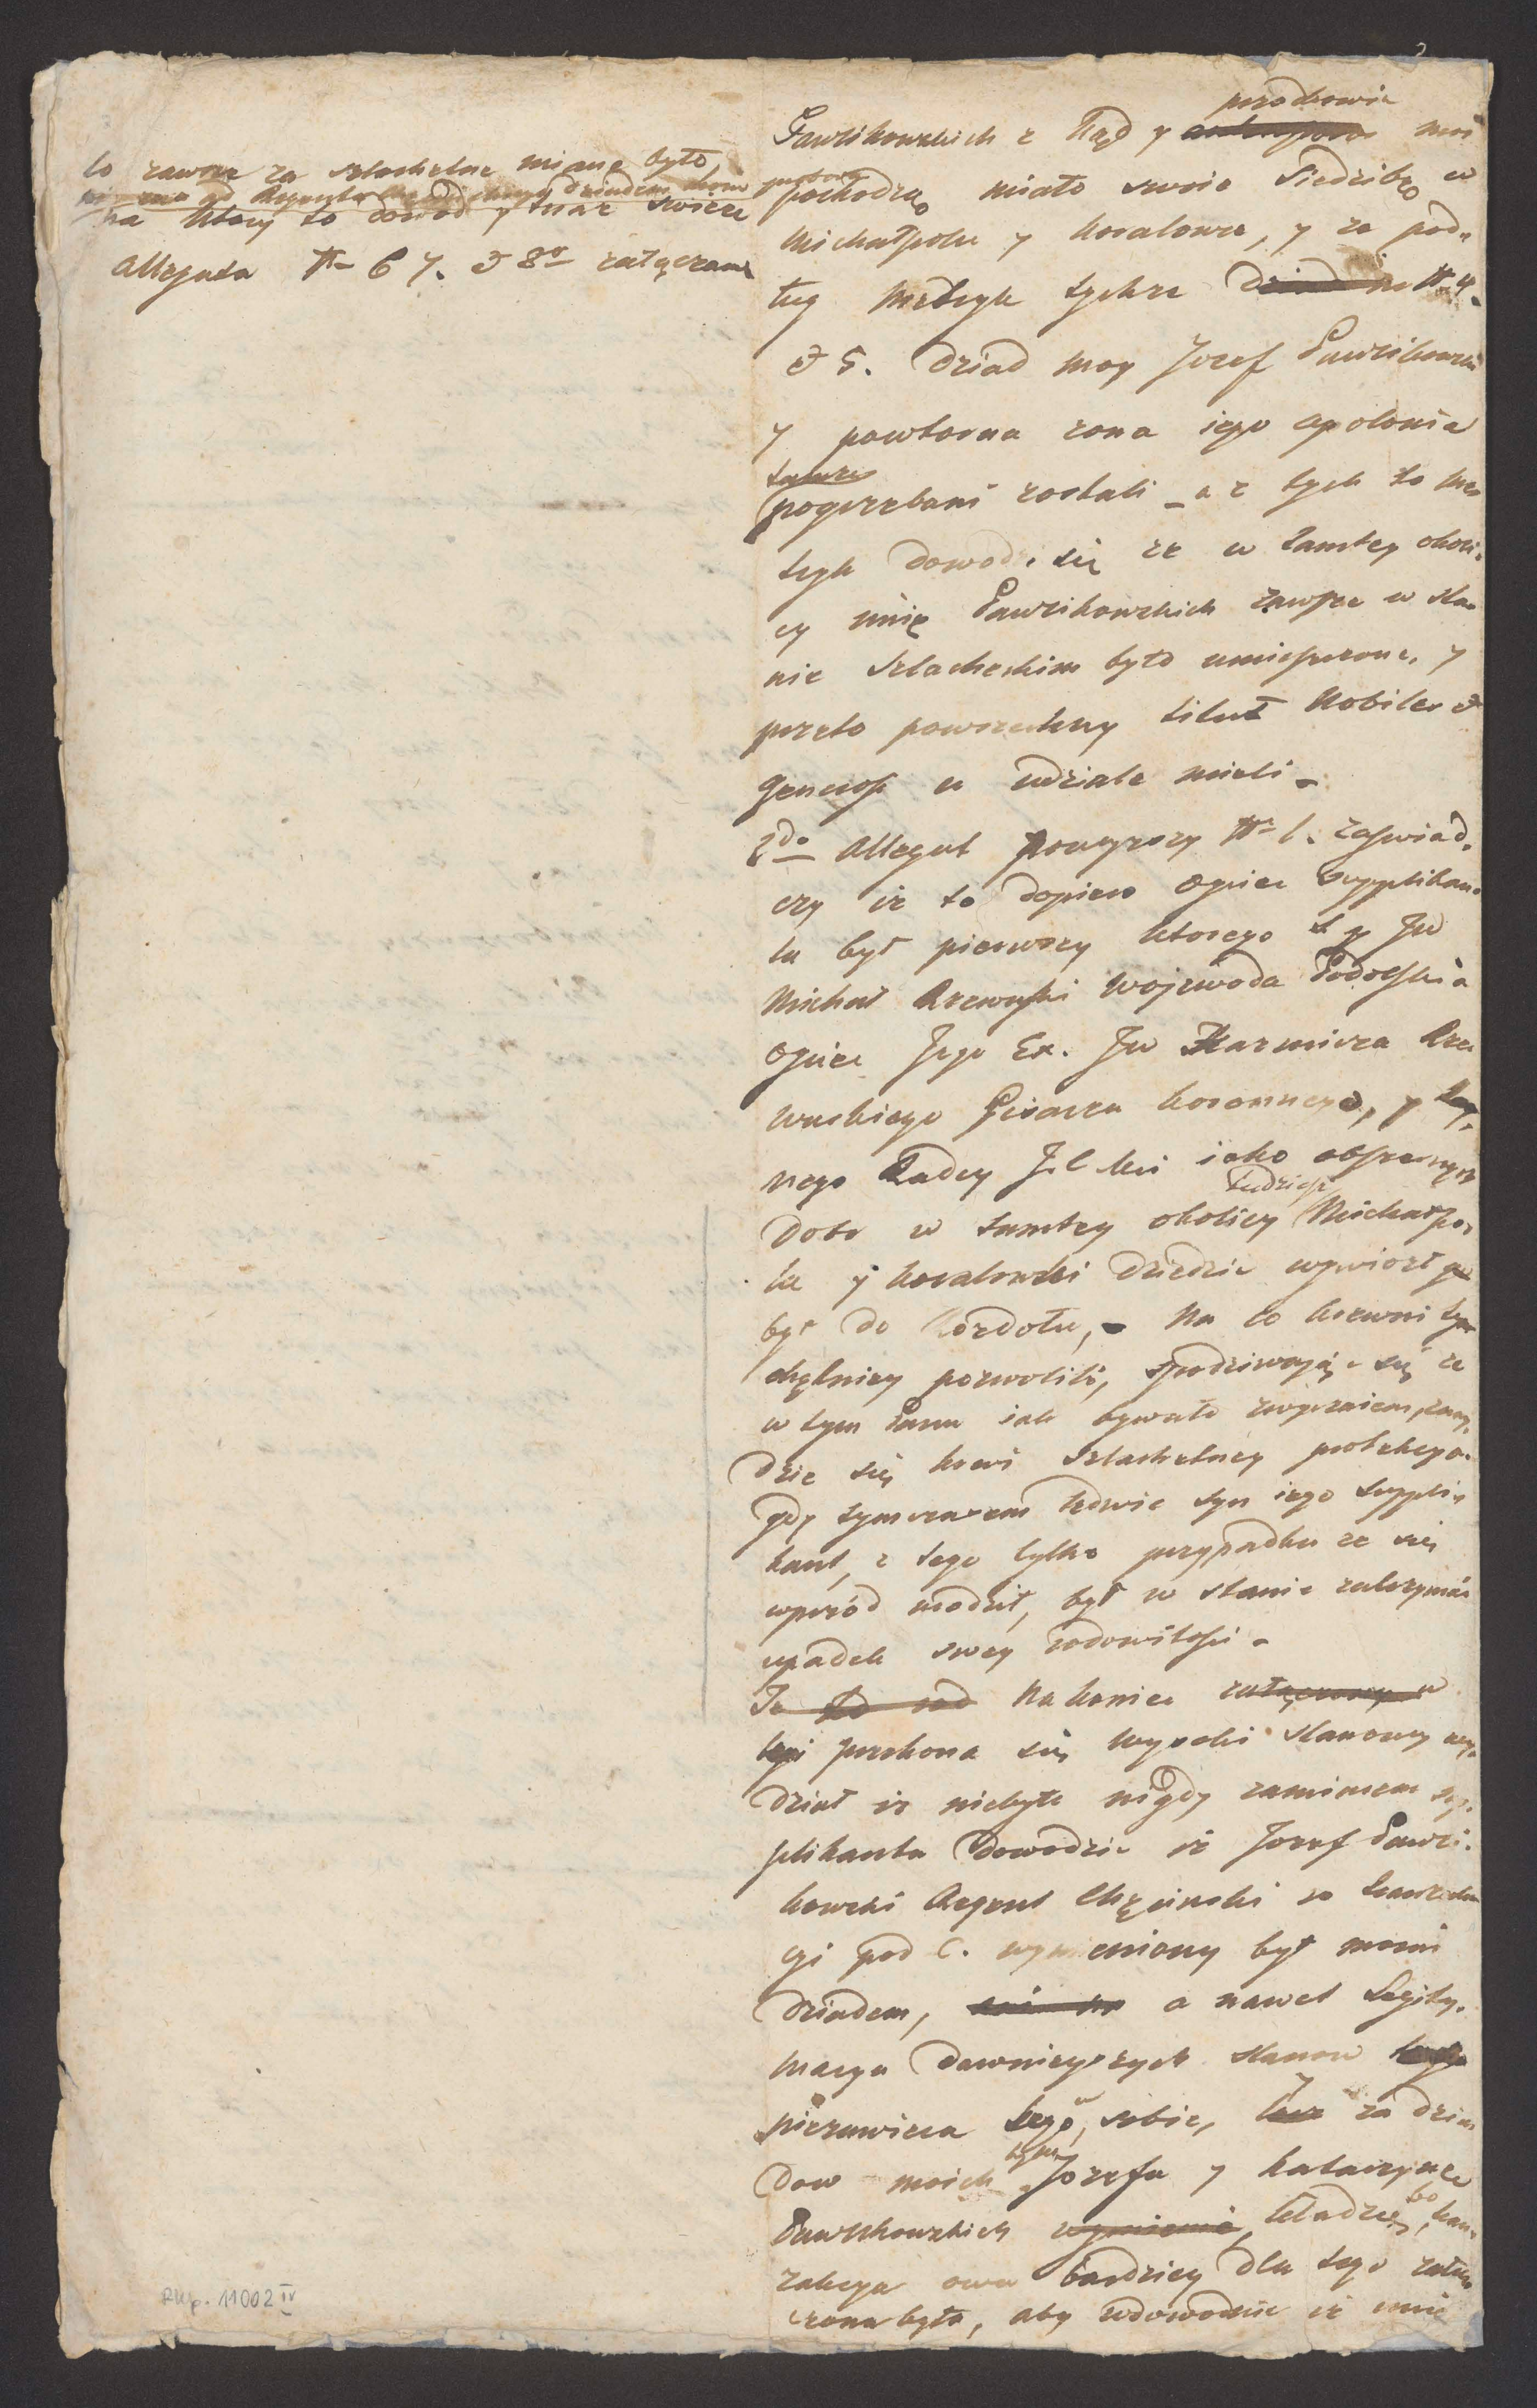 to zawsze za szlachetne miane było,
na który to dowód y teraz swieze
Allegata N 6 7. et 8vo załączam
przodkowie
Pawlikowskich z kąd y moi
pochodzą, miało swoie Siedzibę w
Michałpolu y kovalowce, y ze pod,,
ług metryk tychze N 4.
et 5. dziad moy Jozef Pawlikowski
y powtorna zona iego Apolonia
tamze
pogrzebani zostali _ a z tych to me
tryk dowodzi się ze w tamtey okoli,
cy imię Pawlikowskich zawsze w sta
nie Szlacheckim było umieszczone, y
przeto powszechny tituł Nobiles et
Generosi w udziale mieli.
2do Allegat powyzszy N 1. zaswiad,
czy iz to dopiero Ociec supplikan,
ta był pierwszy ktorego JW
Michał Rzewuski Wojewoda Podolski a
Ociec Jego Ex. JW Kazmirza Rze
wuskiego Pisarza koronnego, y
nego Radcy iako obszernych
dobr w tamtey okolicy tudziesz Michałpo,
la y kovalowki dziedzic wywiozł
był do , Na co krewni
chętniey pozwolili, spodziwając się ze
w tym Panu iak bywało zwyczaiem, znay,
dzie się krwi szlachetney protekcya.
gdy tymczasem ledwie syn iego suppli,
kant, z tego tylko przypadku ze się
wprzód urodził, był w stanie zatrzymać
upadek swey rodowitości.
Na koniec
przekona się Wysoki Stanowy wy,
dział iz niebyło nigdy zamiarem sup,
plikanta dowodzić iz Jozef Pawli,
kowski Regent Chęcinski w tranzak
cyi pod C. wymieniony był moim
dziadem, a nawet Legity,
macya dawnieyszych stanow
niezawiera tego w sobie, za dzia
dow moich tym Jozefa y Katarzynę
Pawlikowskich kładzie, bo tran,
zakcya owa bardziey dla tego załą
czona była, aby udowodnić iz imie
Rkp. 11002 IV